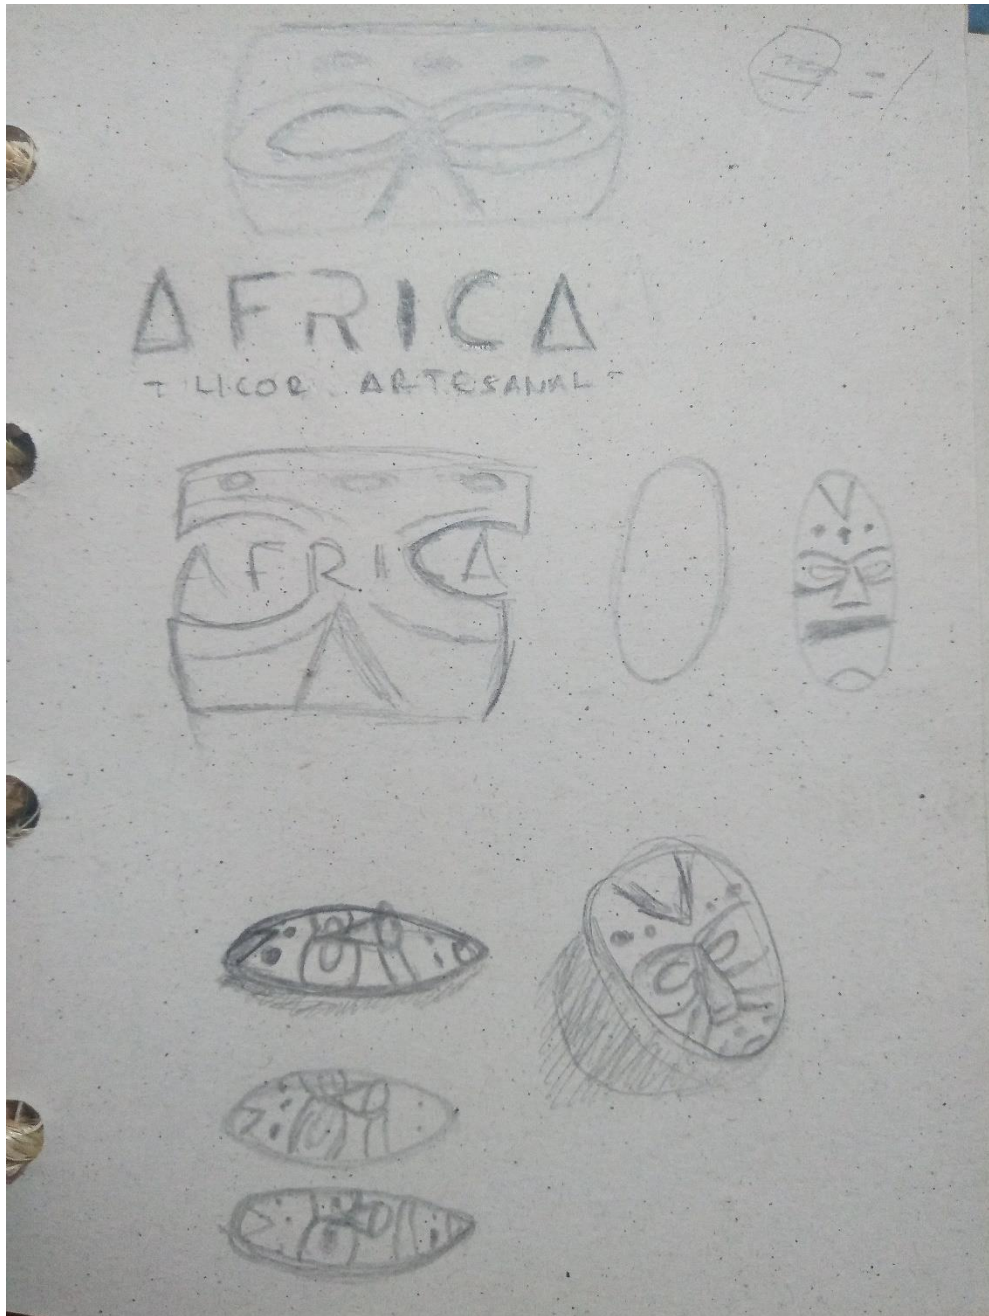 AFRICA
- LICOR ARTESANAL -
AFRICA